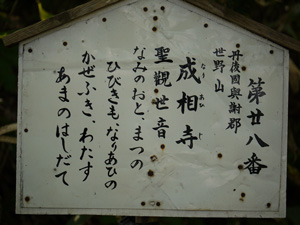 第廿八番
丹後國與謝郡
世野山
成相寺
なりあいじ
聖觀世音
なみのおと、まつの
ひびきも、なりあひの
かぜふき、わたす
あまのはしだて